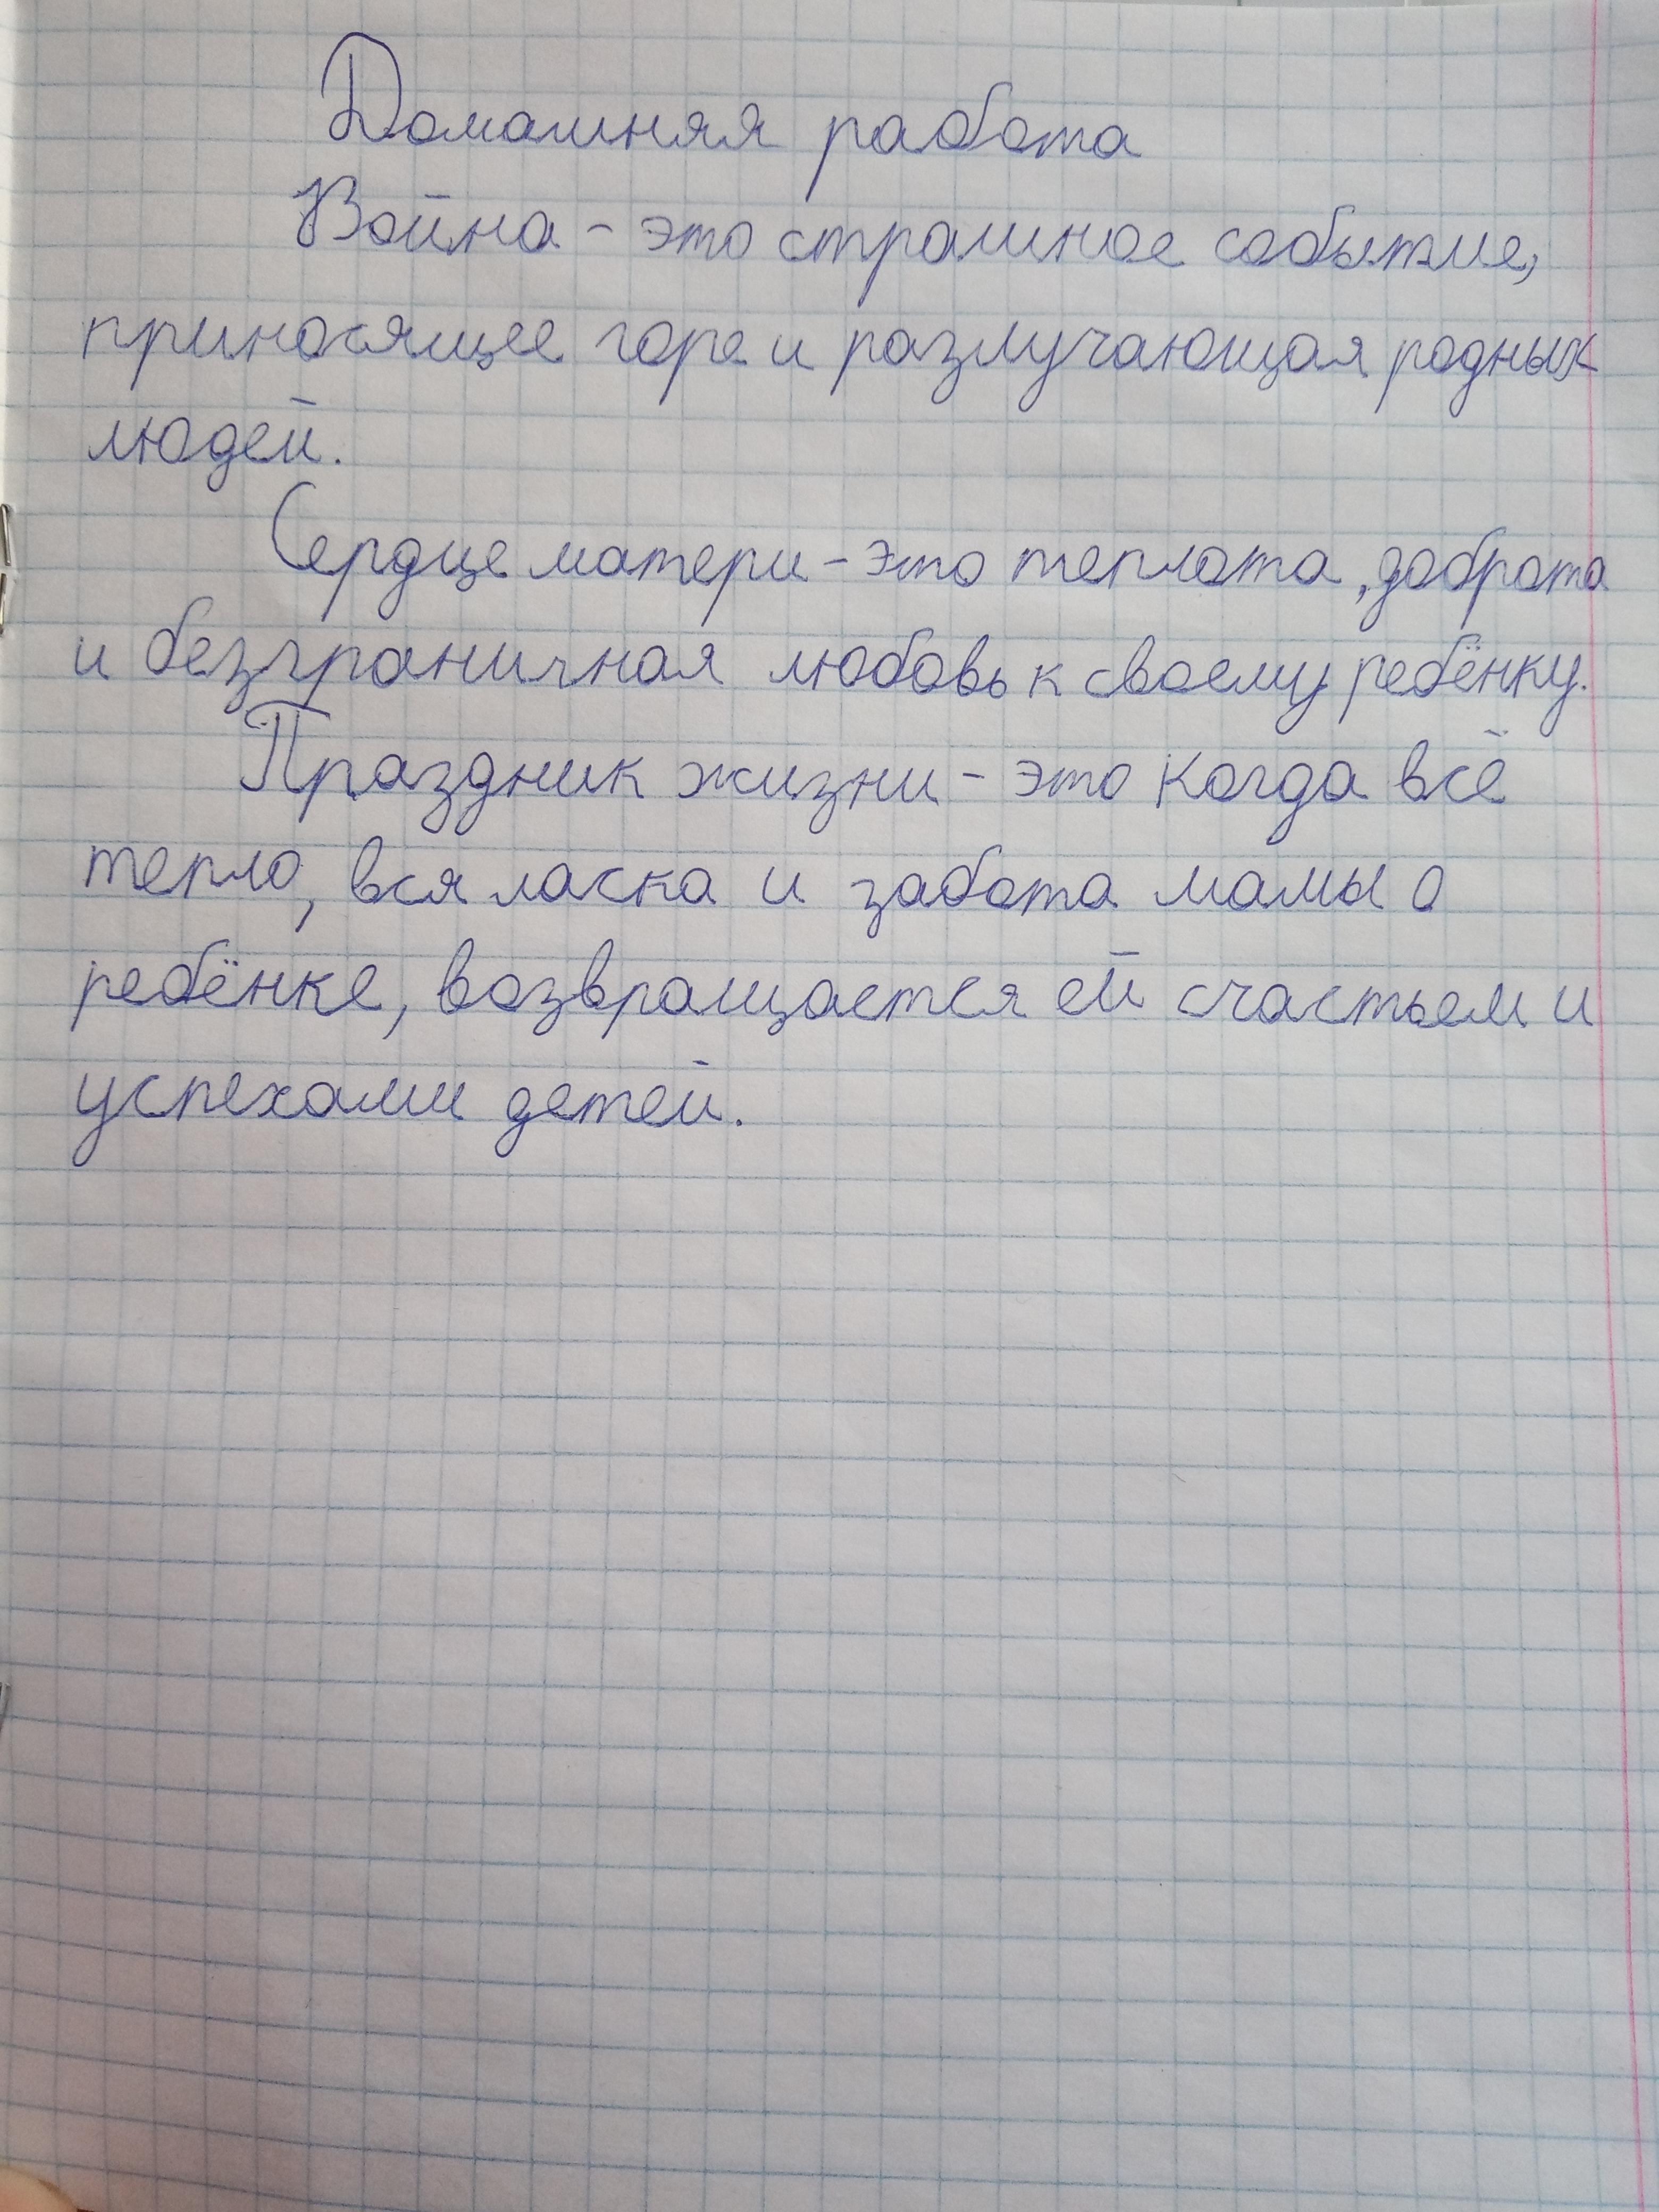 Домашняя работа
Война - это страшное событие,
приносящее горе и разлучающая родных
людей.
Сердце матери - это теплота, доброта
и безграничная любовь к своему ребёнку.
Праздник жизни - это когда всё
тепло, вся ласка и забота мамы о
ребёнке, возвращается ей счастьем и
успехами детей.